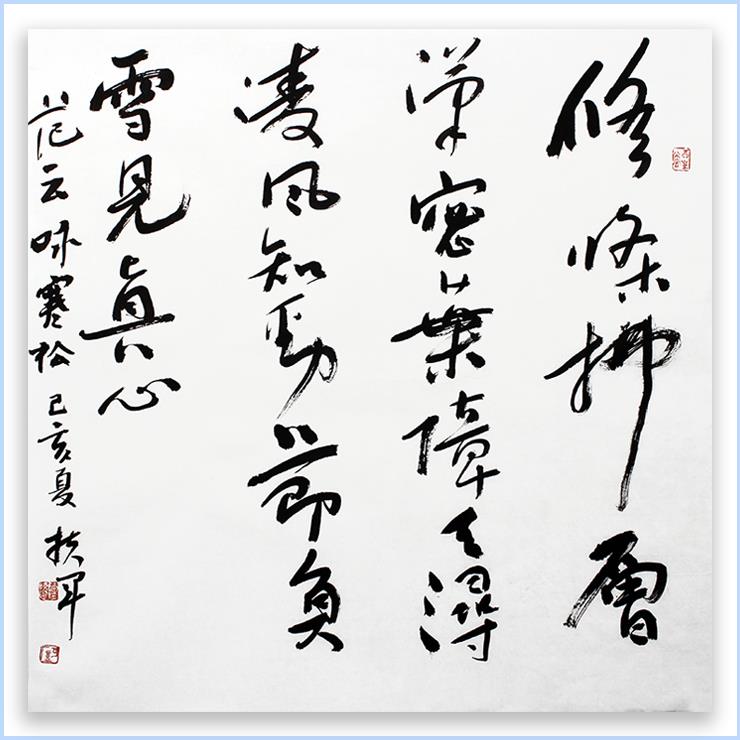 修條拂層
漢密葉障天潯
凌风知勁節負
雪見真心
范云咏寒松 己亥夏